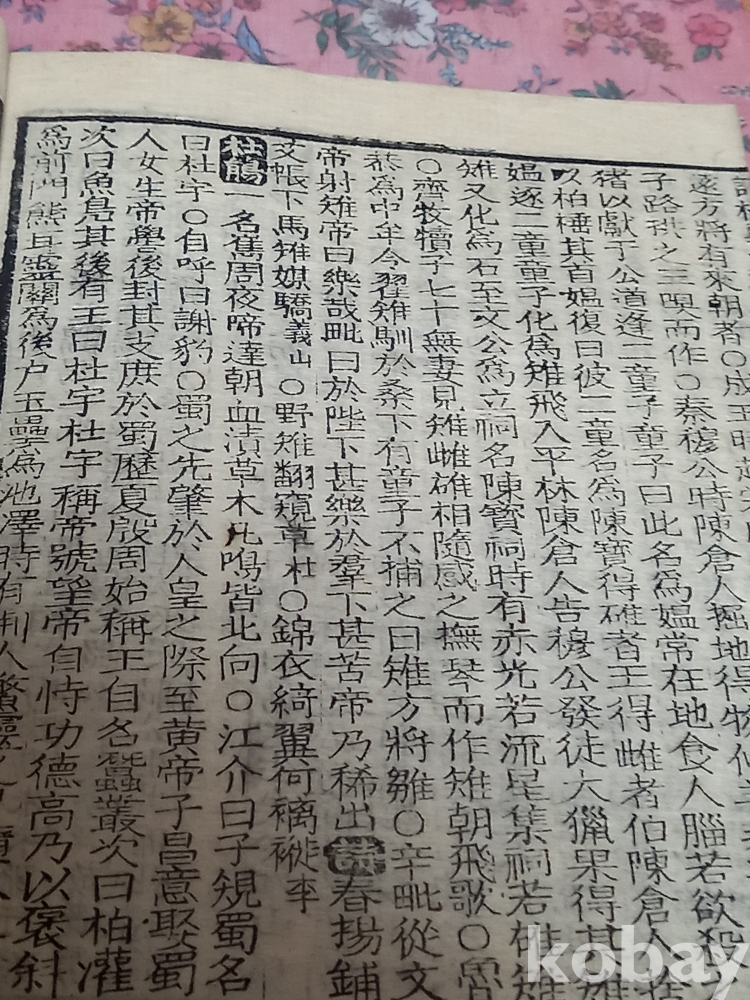 遠方將有來朝者○成王時
子路拱之三嗅而作○秦穆公時陳倉人掘地得物
猪以獻于公道逢二童子童子曰此名爲媼常在地食人腦若欲殺
以柏捶其首媼復曰彼二童名爲陳寶得碓者王得雌者伯陳倉人
媼逐二童童子化爲雉飛入平林陳倉人告穆公發徒大獵果得其雌
雉又化爲石至文公爲立祠名陳寶祠時有赤光若流星集祠若雄雉
○齊牧犢子七十無妻見雉雌碓相隨感之撫琴而作雉朝飛歌○魯
恭爲中牟令翟雉馴於桑下有童子不捕之曰雉方將雛○辛毗從文
帝射雉帝曰樂哉毗曰於陛下甚樂於羣下甚苦帝乃稀出 春揚鋪
艾帳下馬雉媒驕義山○野雉翻窺草杜○錦衣綺翼何褵褷李
杜鵑一名雟周夜啼達朝血漬草木凡鳴皆北向○江介曰子規蜀名
曰杜宇○自呼曰謝豹○蜀之先肇於人皇之際至黃帝子昌意娶蜀
人女生帝嚳後封其支庶於蜀歷夏殷周始稱王自名蠶叢次曰柏灌
次曰魚鳧其後有王曰杜宇杜宇稱帝號望帝自恃功德高乃以褒斜
爲前門熊耳靈關爲後户玉壘爲池澤時有荆人
kobay